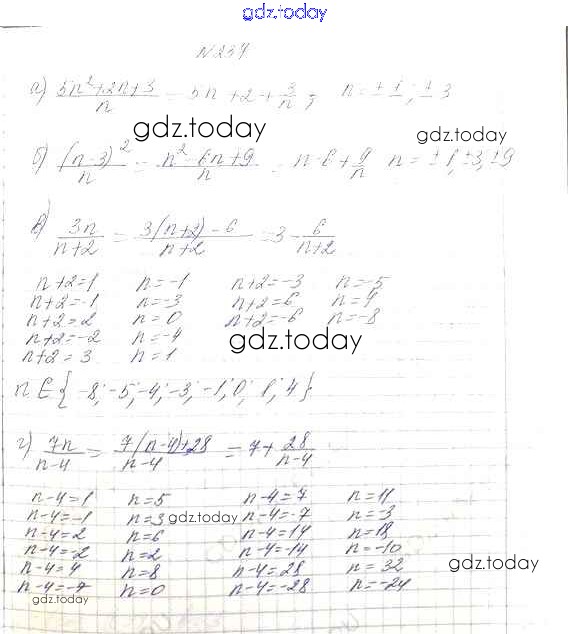 gdz.today
N 237
а) (5n²+2n+3)/n = 5n+2+3/n; n=±1; ±3
gdz.today
gdz.today
б) (n-3)²/n = (n²-6n+9)/n = n-6+9/n n=±1, ±3, ±9
в) 3n/(n+2) = (3(n+2)-6)/(n+2) = 3-6/(n+2)
n+2=1 n=-1 n+2=-3 n=-5
n+2=-1 n=-3 n+2=6 n=4
n+2=2 n=0 n+2=-6 n=-8
n+2=-2 n=-4
gdz.today
n+2=3 n=1
n∈{-8;-5;-4;-3;-1;0;1;4}
г) 7n/(n-4) = (7(n-4)+28)/(n-4) = 7+28/(n-4)
n-4=1 n=5 n-4=7 n=11
n-4=-1 n=3 n-4=-7 n=3
gdz.today
n-4=2 n=6 n-4=14 n=18
n-4=-2 n=2 n-4=-14 n=-10
n-4=4 n=8 n-4=28 n=32
gdz.today
n-4=-4 n=0 n-4=-28 n=-24
gdz.today